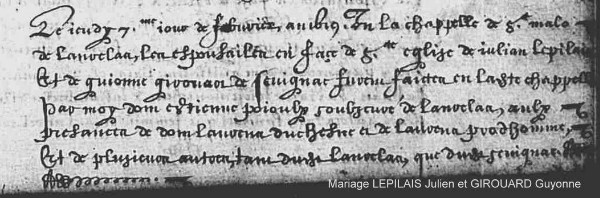 Le jeudy 7.me jour de febvrier, an ibi9. En la chappelle de St malo
de Lanoelaa, les espousailles en face de Ste eglise de iulian lepilais
Et de guionne girouard de sevignac furent faictes en ladte chappelle
Par moy dom estienne soubzcure de Lanoelaa, aulx
presances de dom Laurens duchesne et de Laurens prodhomme,
Et de plusieurs autres, tant dudt Lanoelaa, que dudt sevignac.
Mariage LEPILAIS Julien et GIROUARD Guyonne